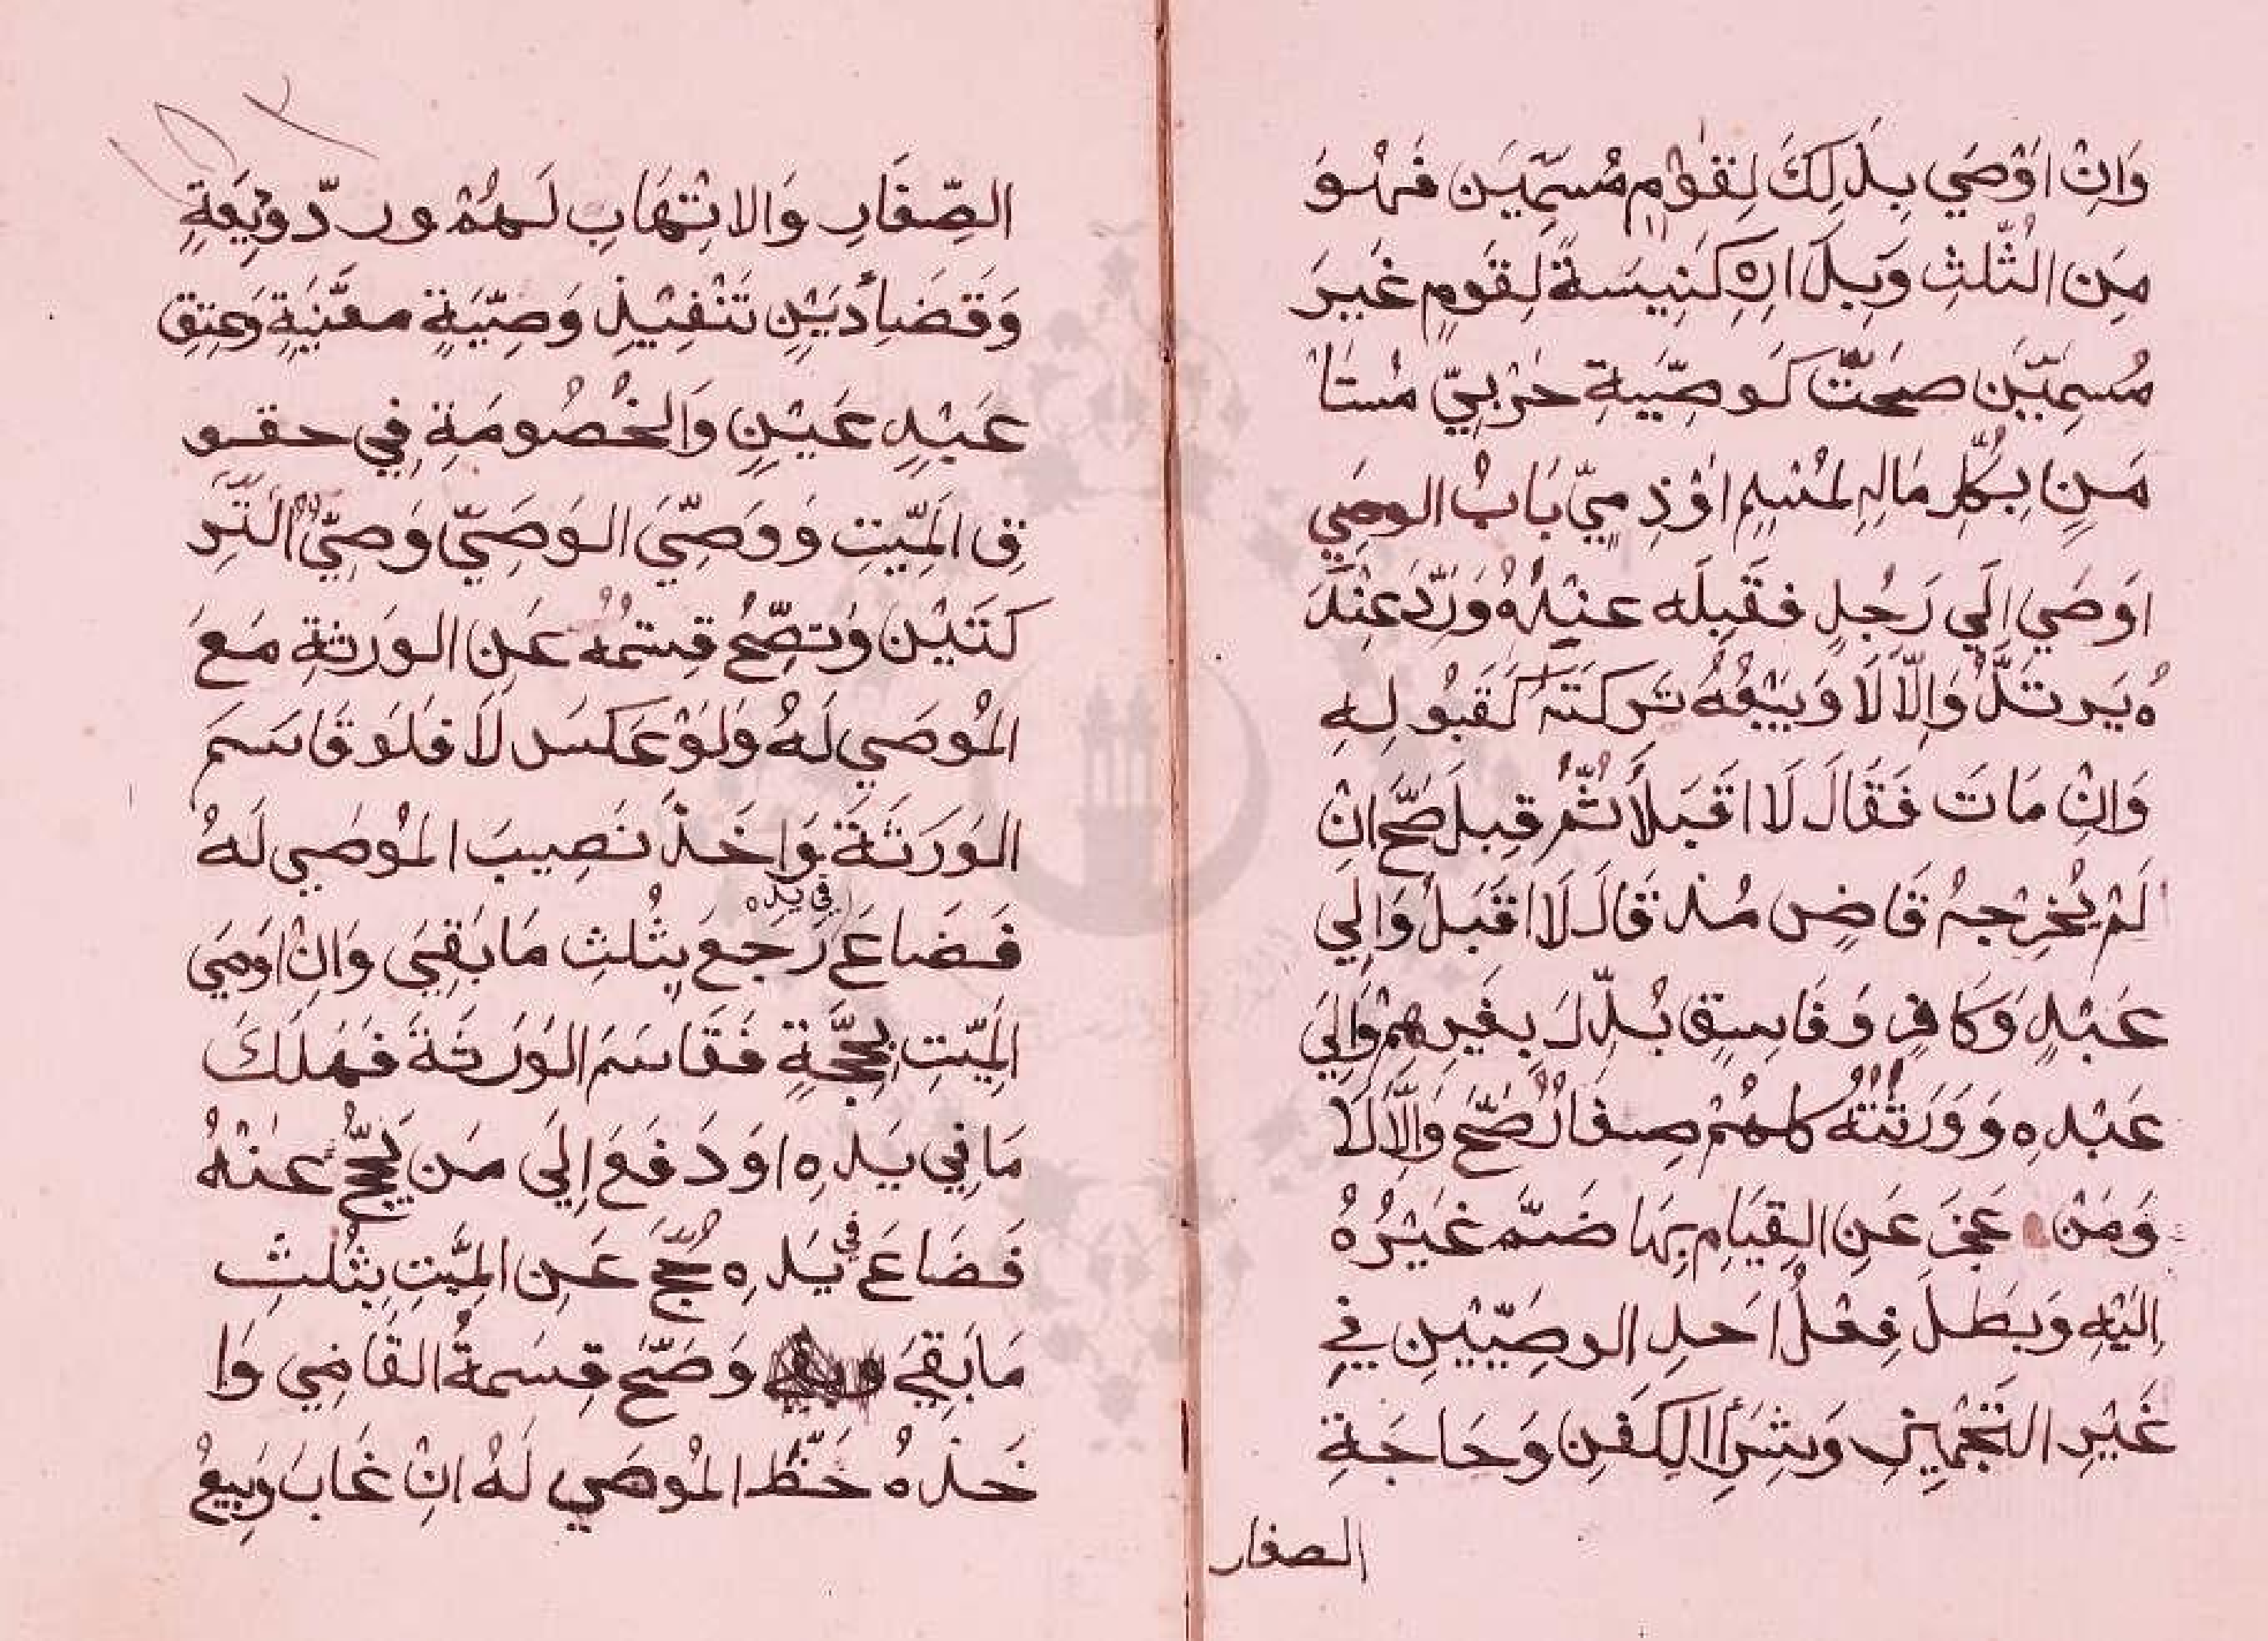 وَاِنْ اَوْصَي بِذَلِكَ لِقَوْمٍ مُسَمِّيَن فَهُوَ
مِنَ الثُّلثِ وَبِدَارِهِ كَنِيسَةً لِقَومٍ غَيرَ
مُسمِيّيَن صَحَتّ كَوصِّيةِ حَرْبِيّ مُستَا
مَنٍ بِكُلِّ مَالِهِ لمُسْلِمٍ اوْ ذِمِيّ بَابُ الوصَي
اوَصَي اِلَي رَجُلٍ فقَبِلَه عنِدْهُ وَرَدَّ عِنْدَ
هُ يَرتَدُّ وَاِلّاَ لَا وَبَيْعُهُ تَركَتَهُ كَقَبُولِهِ
وَاِنْ مَاتَ فَقَالَ لَا اقَبَلُ ثُمَّ قبِلَ صَحَّ اِنْ
لَمْ يُخرِجهُ قَاضٍ مُنذ قَالَ لَا اقَبَلُ وَاِلَي
عَبْدٍ وَكَافِرٍ وَفَاسِقٍ بُدِّلَ بِغَيرِهِمْ وَاِلَي
عَبْدِهِ وَوَرَثَتُهُ كلهُمْ صِغَارٌ صَحَّ وَاِلّاَ لَا
وَمَنْ عَجَزَ عَنِ القِيَامِ بِهَا ضَمَّ غَيْرُهُ
اِلَيْهِ وَبَطَلَ فِعْلُ اَحَدِ الوصِيّيْنِ فِي
غَيْرِ التَجْهِيزِ وَشِرَأ الكِفَنِ وَحَاجَةِ
الصغار
الصِّغَارِ وَالاتِهَابِ لَهُمْ وردّ ودِيْعَةٍ
وَقَضَأِ دَيْنٍ تَنْفِيْذِ وَصِيّةٍ معَّنيَةٍ وَعِتِقِ
عَبْدٍ عَيْنٍ وَالخُصُومَةِ فِي حقو
قِ المَيّتِ وَوَصِيَّ الوَصَيّ وَصِيُّ التَرِ
كَتَيْن وَتصِحُّ قِسْمتُهُ عَنِ الورَثةِ مَعَ
المُوصَي لَهُ وَلَوْ عَكسَ لَا فَلَو قَاسَمَ
الوَرَثَةَ وَاخَذَ نَصِيبَ المُوصَي لَهُ
في يده
فَضَاعَ رَجَعَ بِثُلثِ مَا بَقِيَ وَاِنْ اوَصَي
المَيّتِ بِحَجَّةٍ فَقَاسَمَ الوَرَثَةَ فَهَلَكَ
مَا فِي يَدِهِ اوَ دَفَعَ اِلَي مَن يَحُجُّ عَنْهُ
فَضَاعَ في يَدِهِ حَجَّ عَنِ المَيّتِ بِثُلثِ
مَا بَقِيَ وَصَحّ قِسَمةُ القَاضِي وَا
خَذهُ حَظَّ المُوصَي لَهُ اِنْ غَابَ وَبِيعُ